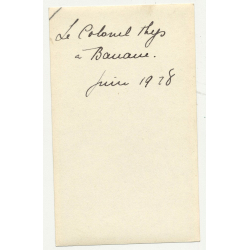 Le Colonel Thys
a Banane.
juin 1928